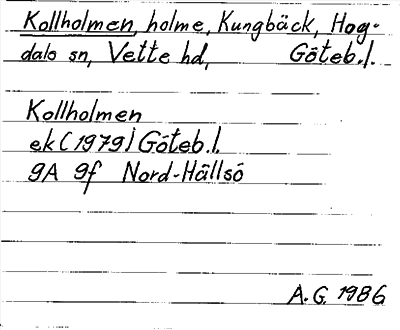 Kollholmen, holme, Kungbäck, Hog-
dals sn, Vette hd, Göteb.l.
Kollholmen
ek (1979) Göteb.l.
9A 9f Nord-Hällsö
A.G. 1986